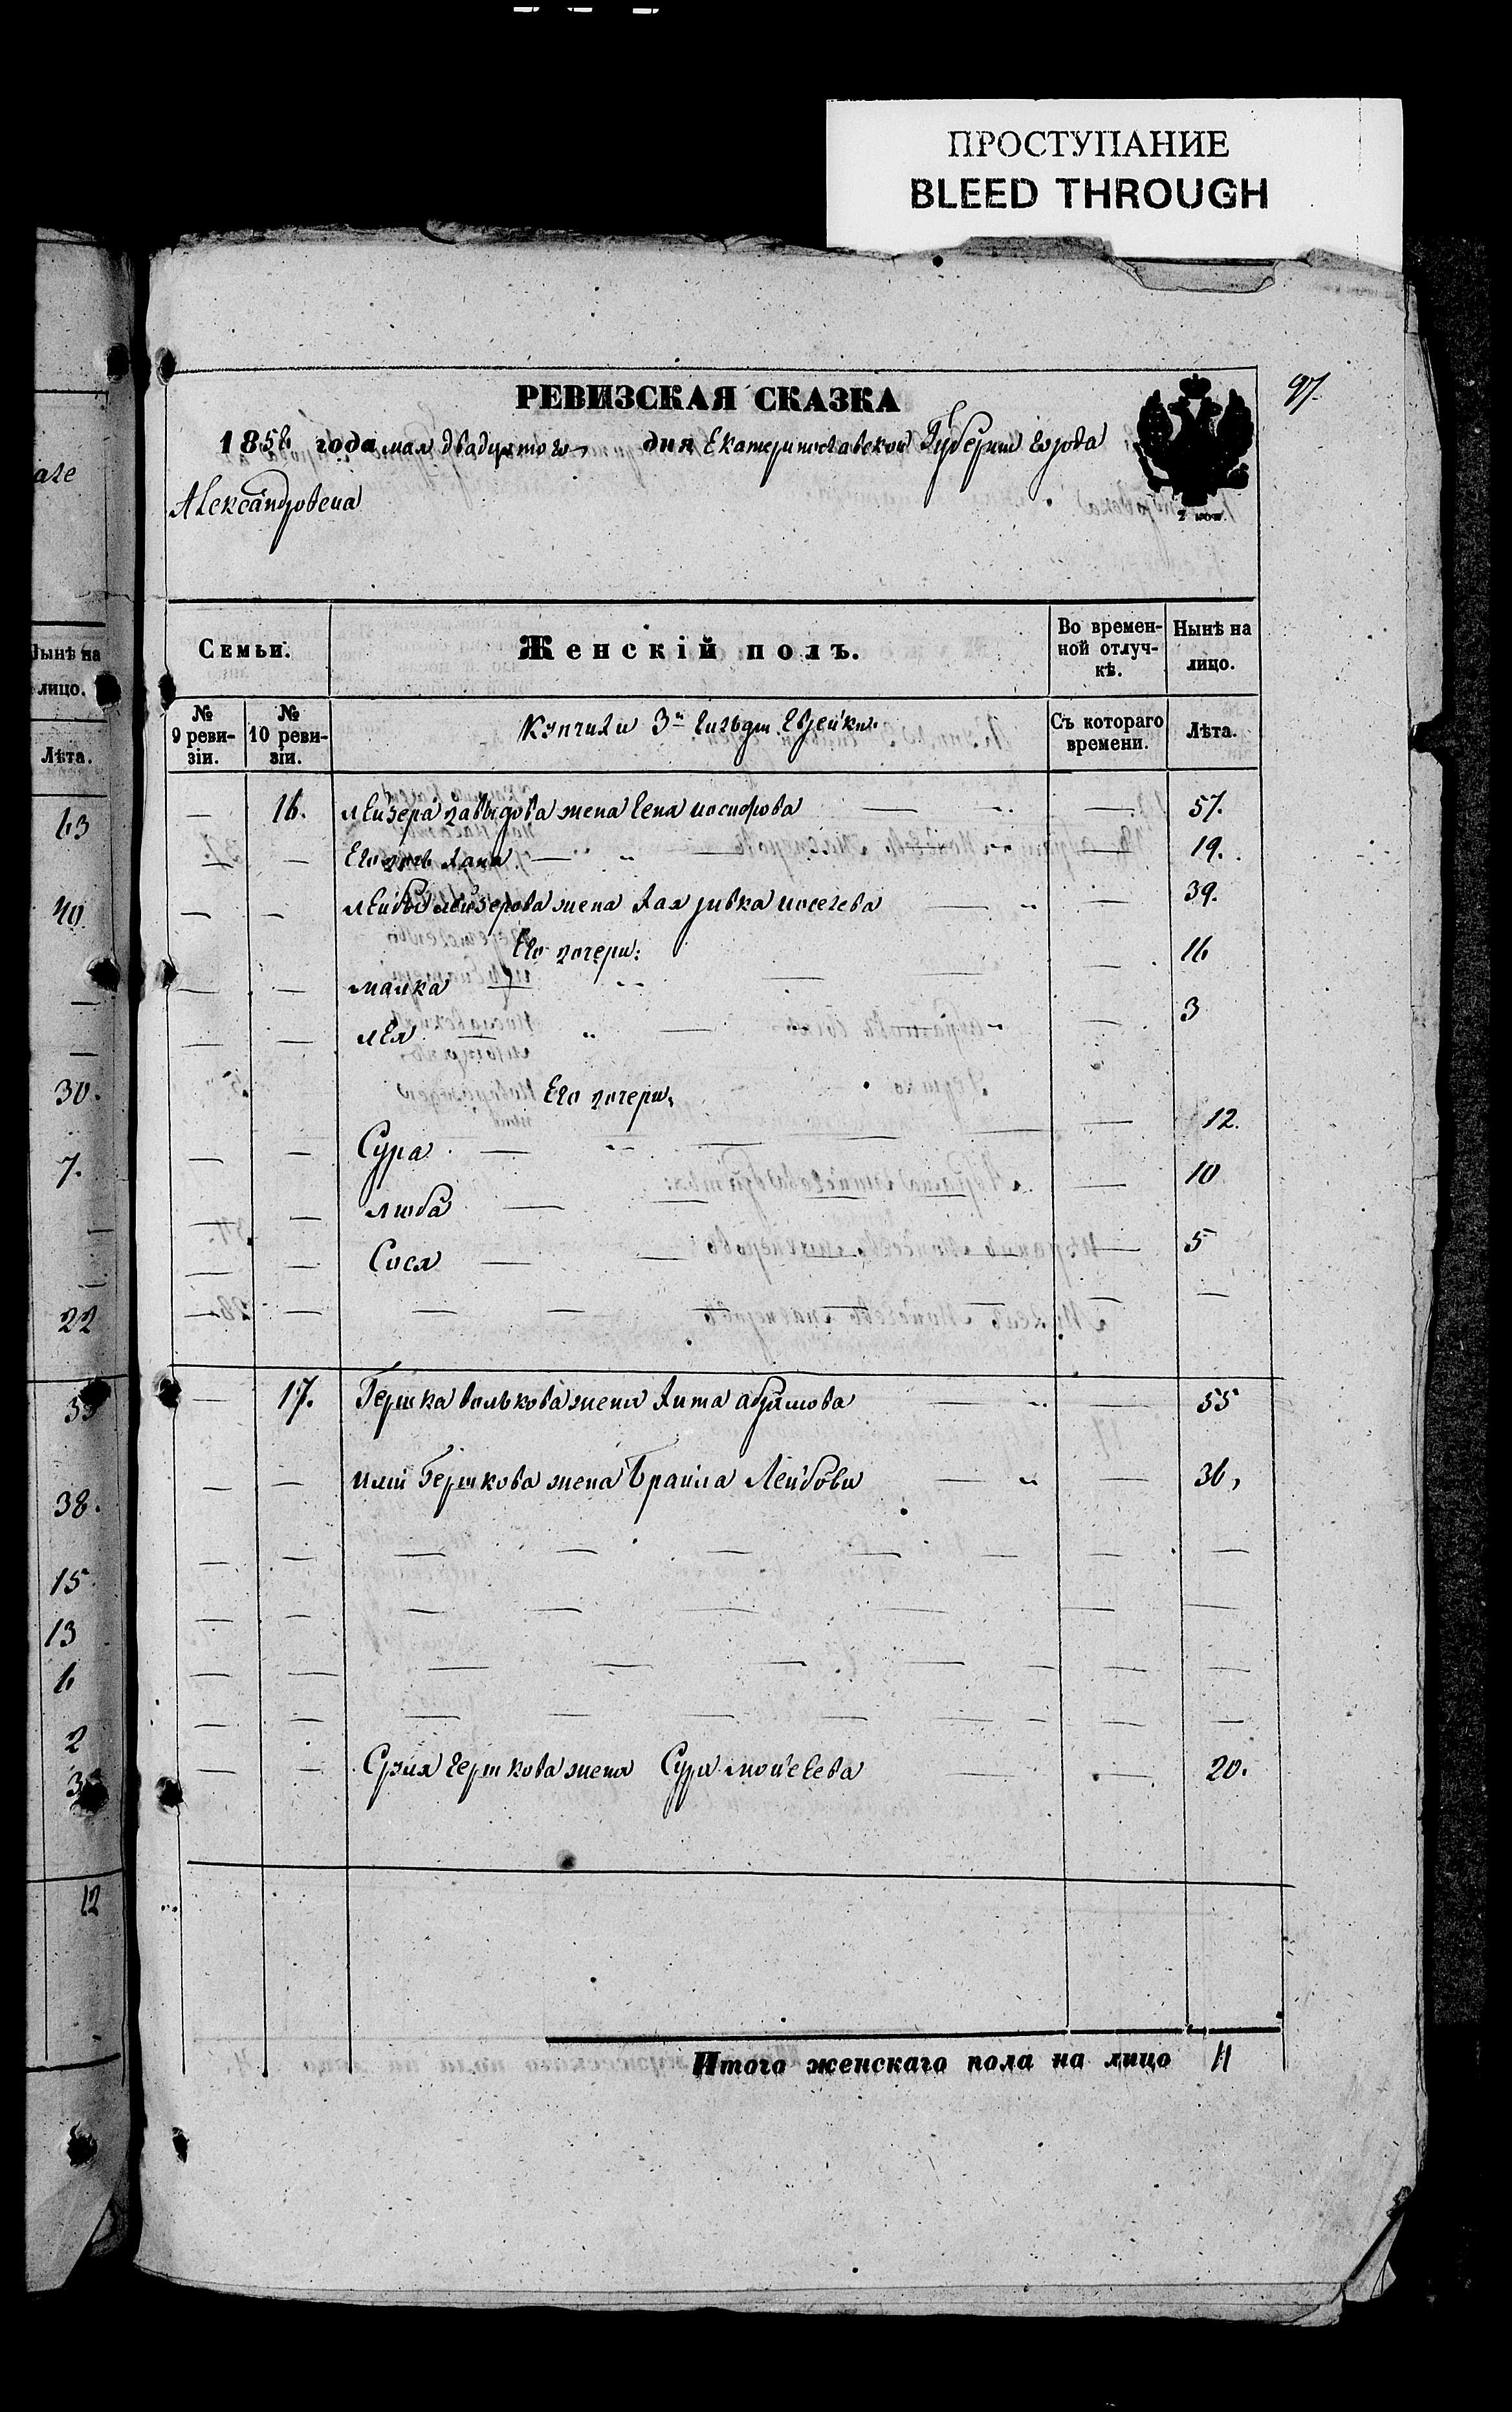 ПРОСТУПАНИЕ
BLEED THROUGH
97.
РЕВИЗСКАЯ СКАЗКА
1858 года мая двадцятого дня Екатеринославской Губернии города
Александровска
2 коп.
Семьи.
Женскій полъ.
Во времен-
ной отлуч-
кѣ.
Нынѣ на
лицо.
№
9 реви-
зіи.
№
10 реви-
зіи.
Купчихи 3й гильдіи Еврейки.
Съ котораго
времени.
Лѣта.
— 16. Лейзера Давыдова жена Гена — 57.
Его дочь Хана — 19.
Лейбы Лейзерова жена Хая Ривка — 39.
Его дочери: 16
Малка — 3
Лея —
Его дочери,
12.
Сура — 10
Люба —
Сося — 5
— 17. Гершка Волькова жена Хита Абрамова — 55
Гершкова жена Браина Лейбова — 36,
Сроля Гершкова жена Сура Мойсеева — 20.
Итого женскаго пола на лицо 11
Нынѣ на
лицо.
Лѣта.
63
40
30.
7.
22
38.
15
13
2
12